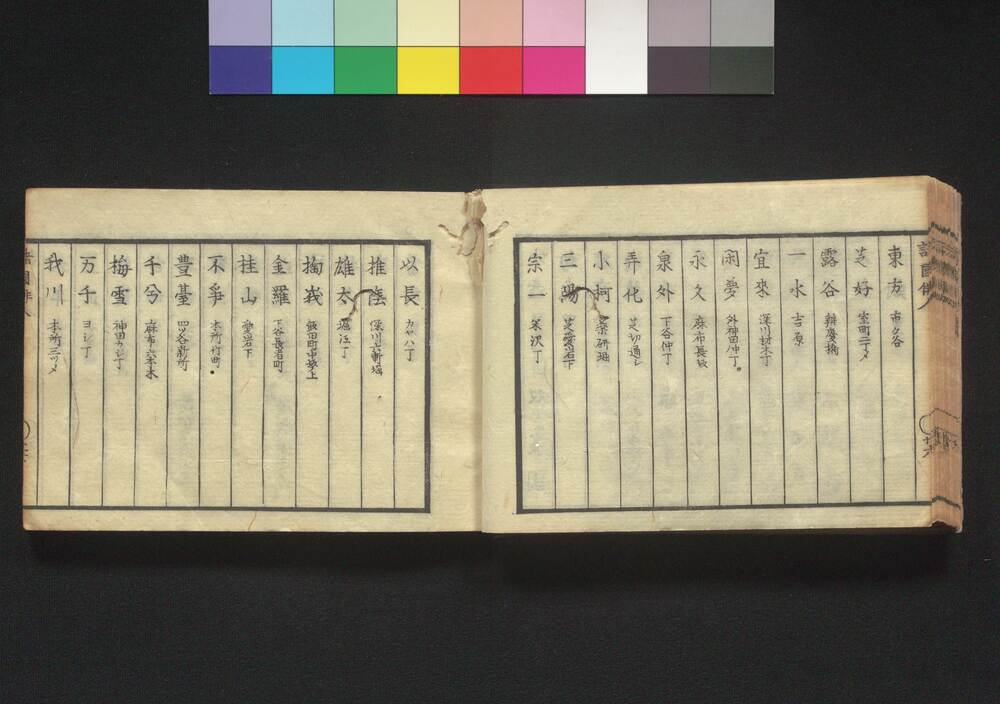 東方 市ケ谷
芝好 室町二丁メ
露谷 弁慶橋
一水 吉原
閑夢 外神田仲丁
宜來 深川材木丁
永久 麻布長坂
泉外 下谷仲丁
弄化 芝切通シ
小柯 薬研堀
三陽 芝愛宕下
宗一 米沢丁
以長 カヤハ丁
推陰 深川六軒堀
雄太 堀江丁
掬峩 飯田町中坂上
金羅 下谷長者町
桂山 愛宕下
不爭 本所竹町
豊臺 四ツ谷新所
千兮 麻布六本木
梅雪 神田カジ丁
万千 ヨシ丁
我川 本所三ツメ